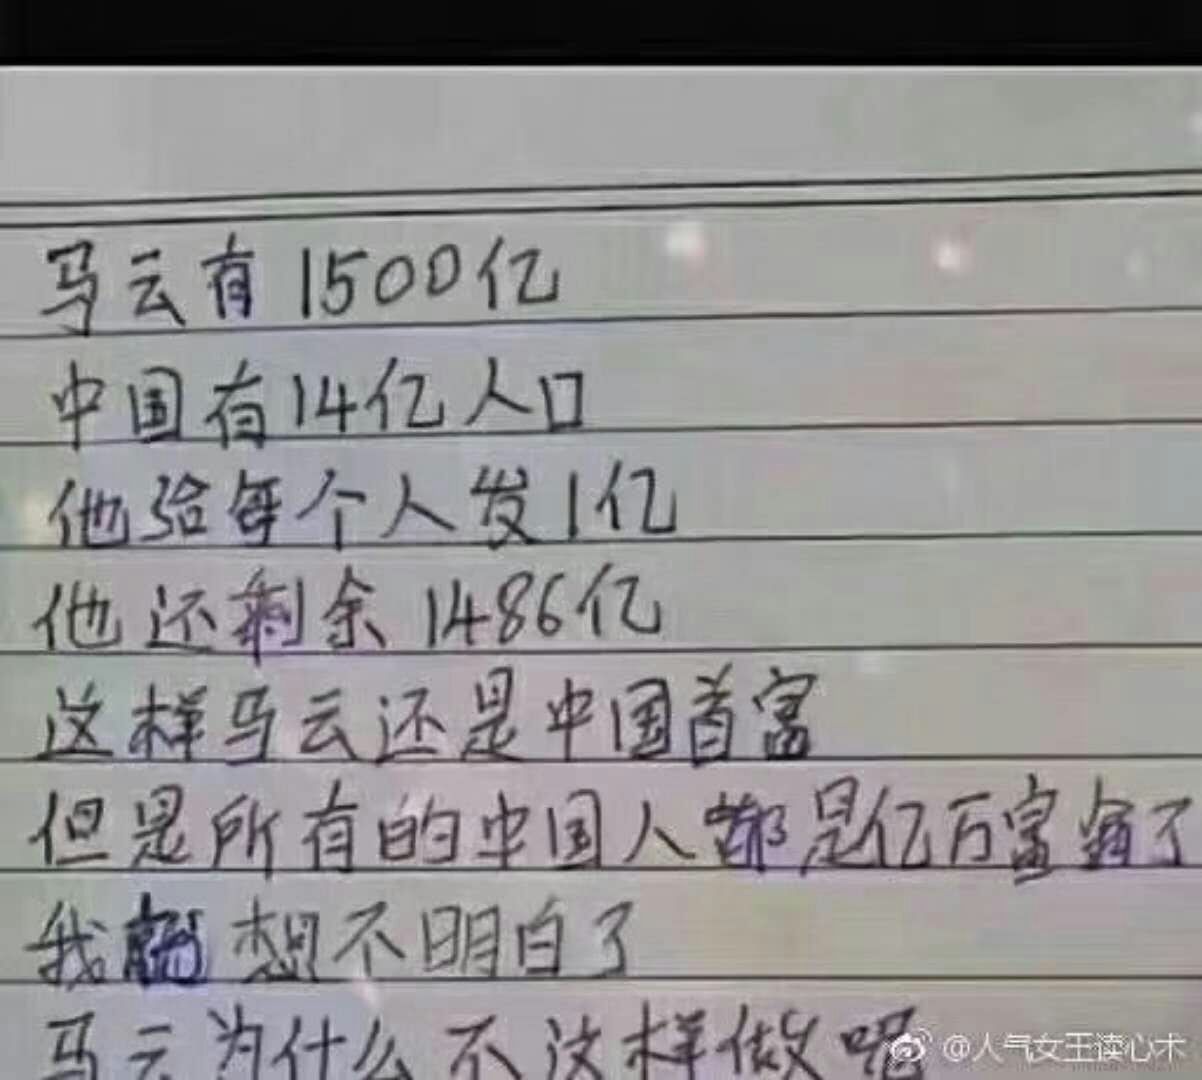 马云有1500亿
中国有14亿人口
他给每个人发1亿
他还剩余1486亿
这样马云还是中国首富
但是所有的中国人都是亿万富翁了
我就想不明白了
马云为什么不这样做呢
@人气女王读心术